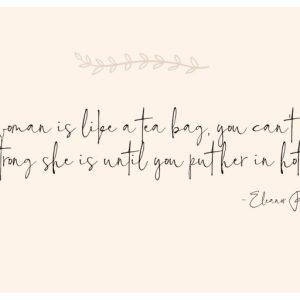 woman is like a tea bag, you can't
trong she is until you put her in hot
- Eleanor R